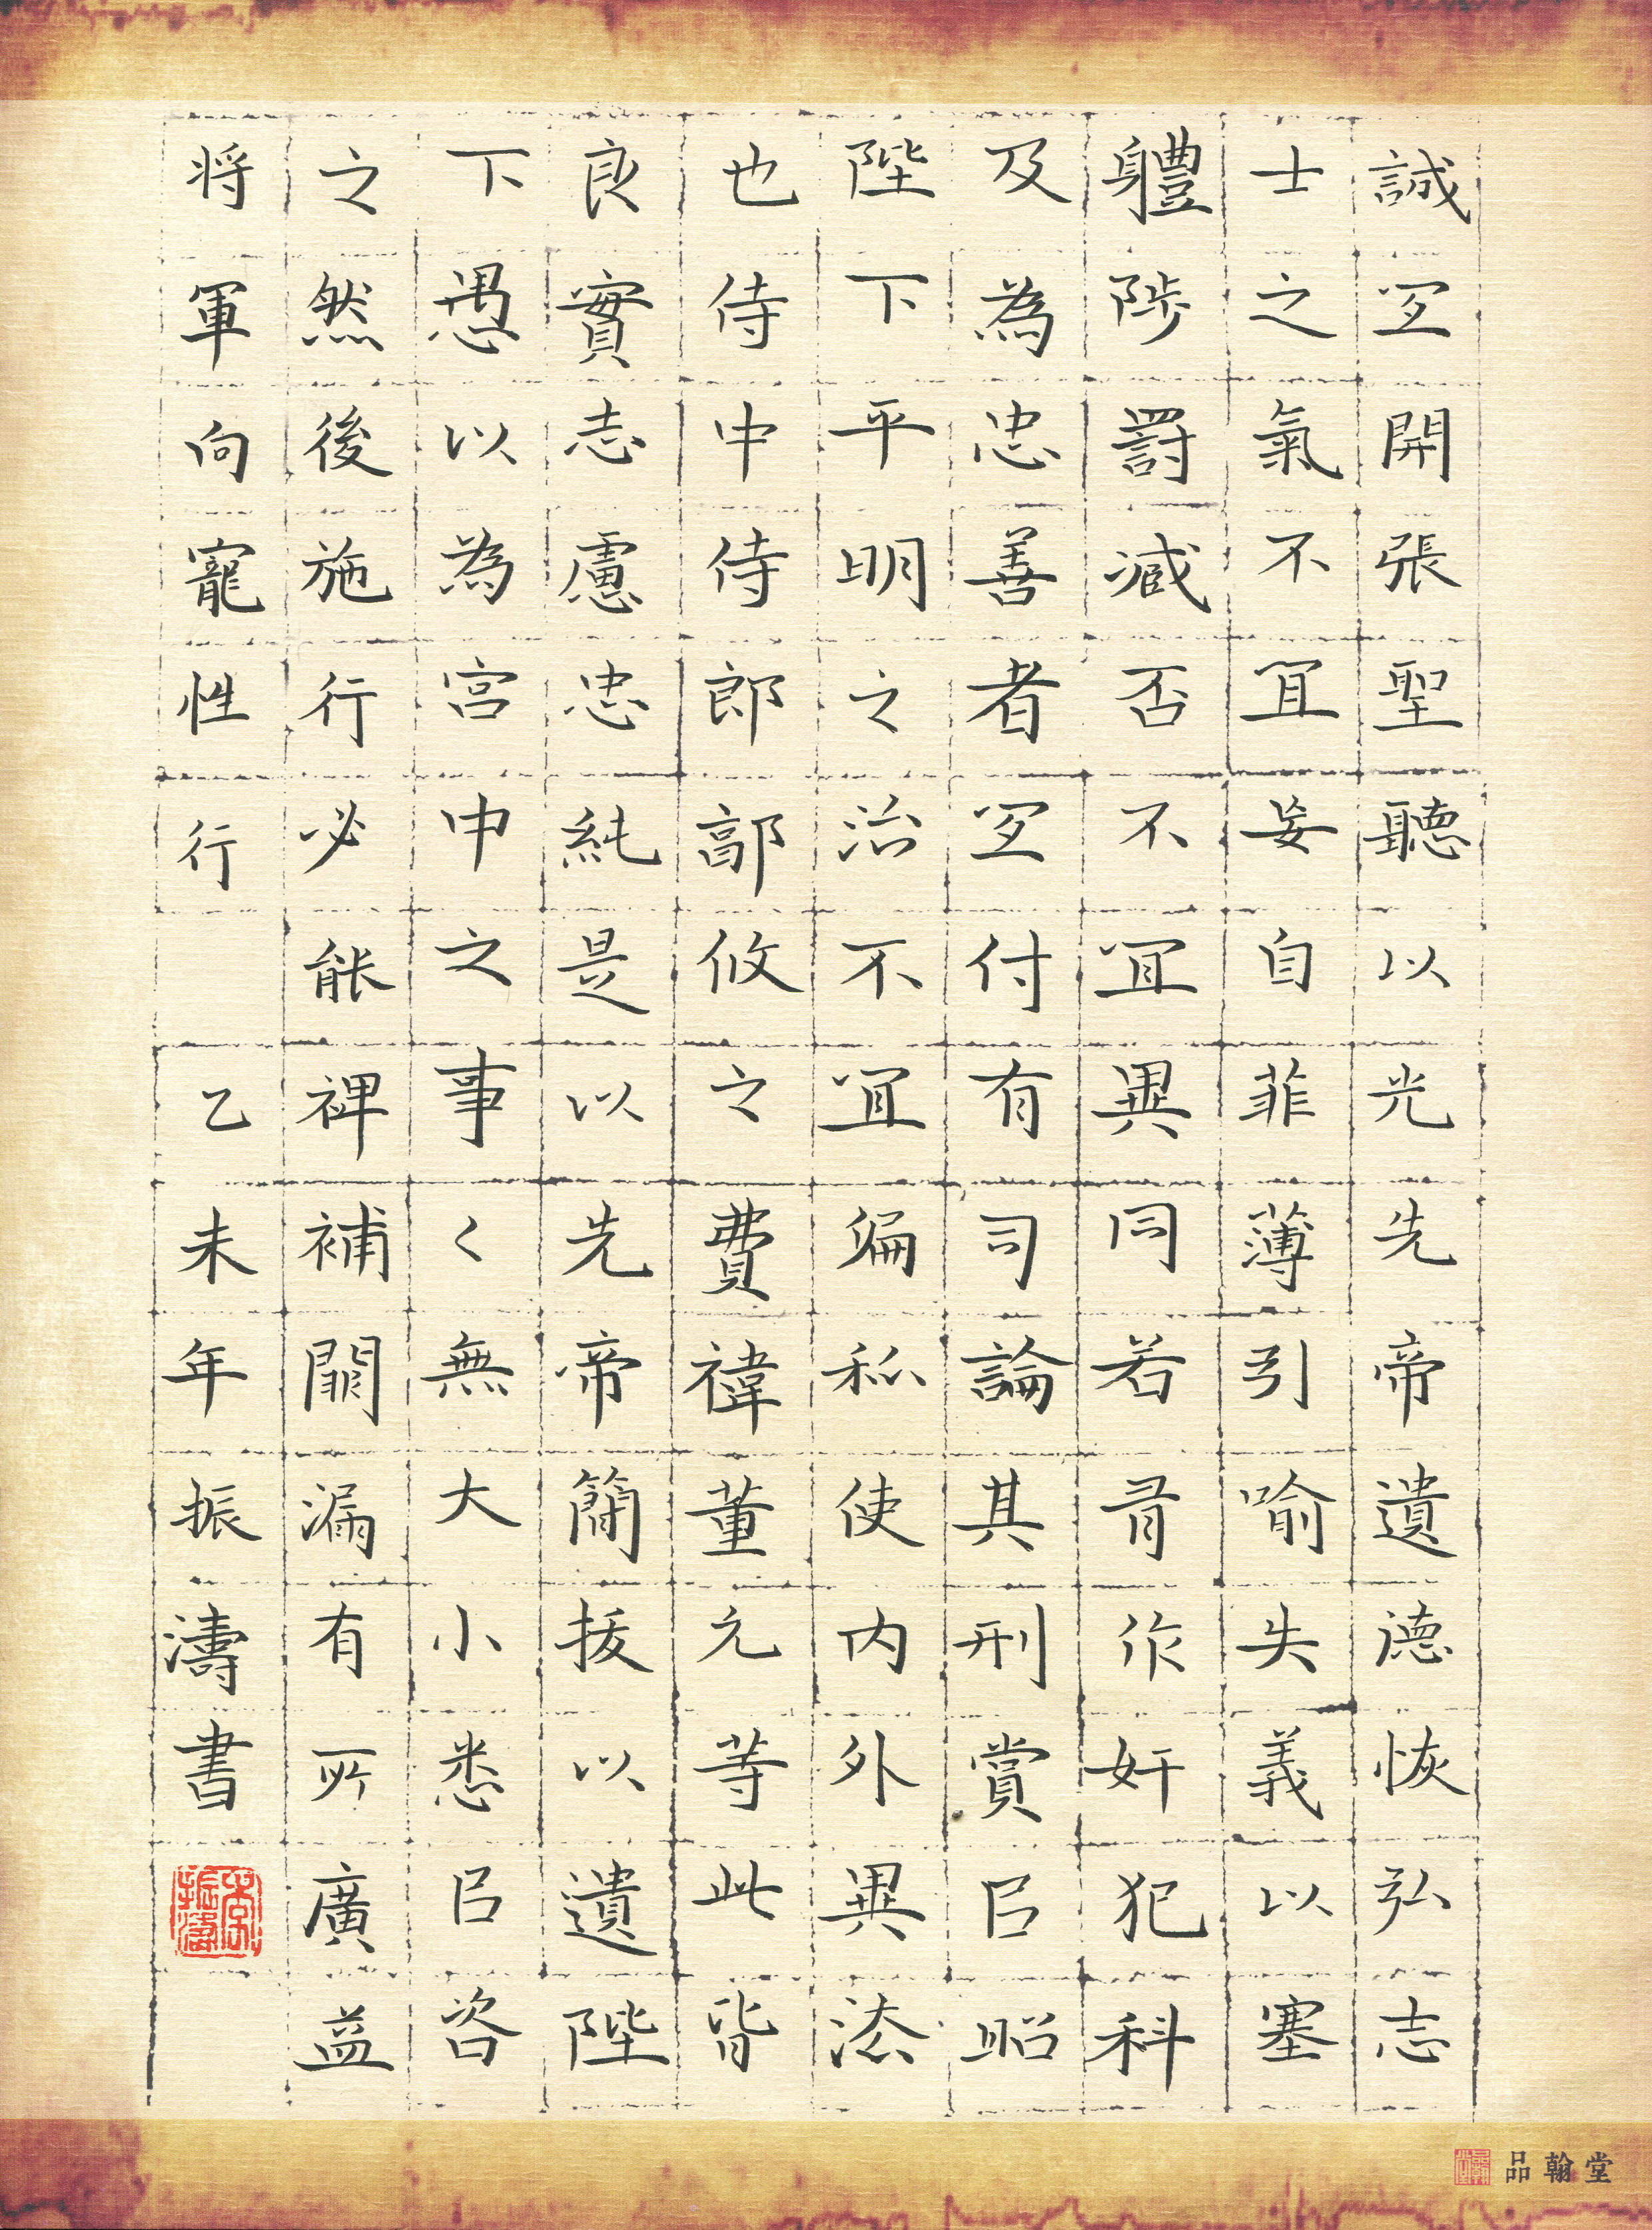 誠宜開張聖聽以光先帝遺德恢弘志
士之氣不宜妄自菲薄引喻失義以塞
軆陟罰臧否不宜異同若有作奸犯科
及為忠善者宜付有司論其刑賞㠯昭
陛下平明之治不宜偏私使内外異法
也侍中侍郎郭攸之費禕董允等此皆
良實志慮忠純是以先帝簡拔以遺陛
下愚以為宮中之事〻無大小悉㠯咨
之然後施行必能裨補闕漏有所廣益
将軍向寵性行 乙未年振濤書
李振濤
品翰堂